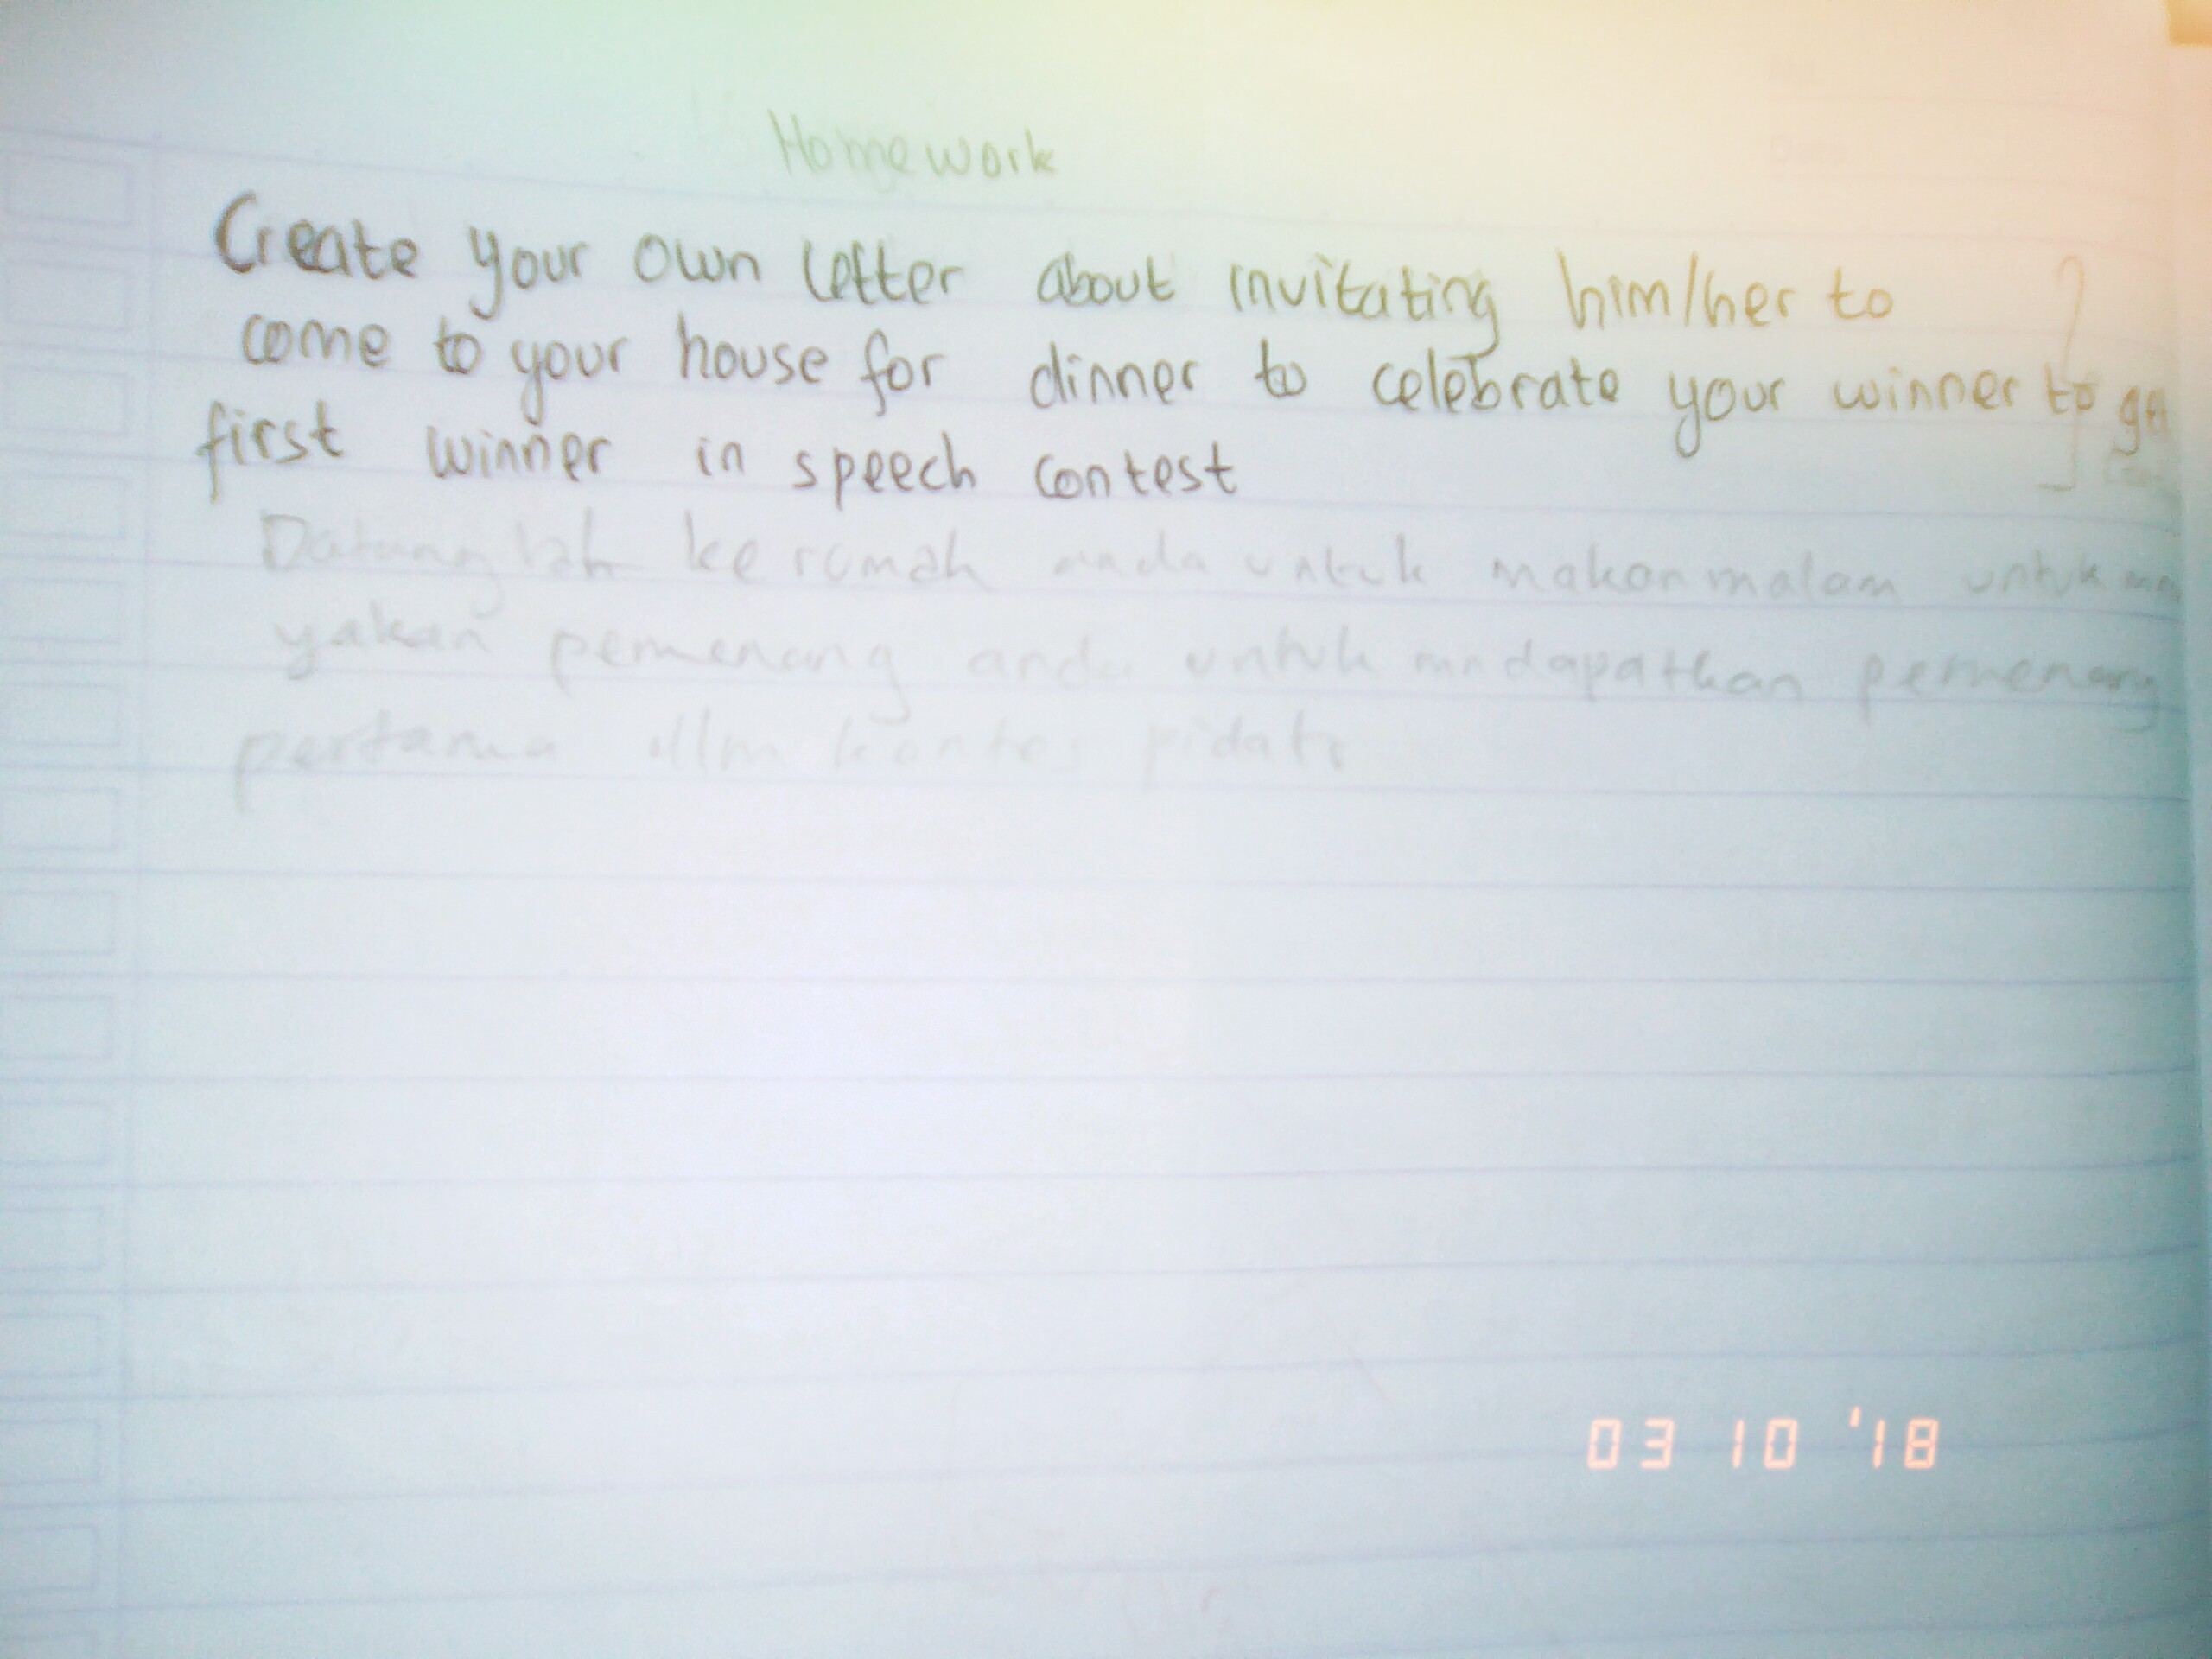 Homework
Create your own letter about invitating him/her to
come to your house for dinner to celebrate your winner to
first winner in speech contest
Datanglah ke rumah anda untuk makan malam untuk
yakan pemenang anda untuk mndapatkan pemenang
pertama dlm kontes pidato
03 10 '18